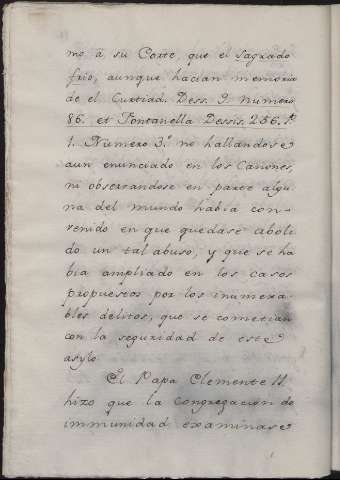 mo à su Corte, que el sagrado
frio, aunque hacian memoria
de el Curtiad. Dess. 9 numero
86. et Fontanella Dessis. 256. P.
1. Número 3.º no hallandose
aun enunciado en los Canones,
ni observandose en parte algu-
na del mundo habia con-
venido en que quedase aboli-
do un tal abuso, y que se ha-
bia ampliado en los casos
propuestos por los inumera-
bles delitos, que se cometian
con la seguridad de este
asylo.
El Papa Clemente 11.
hizo que la congregacion de
immunidad examinase